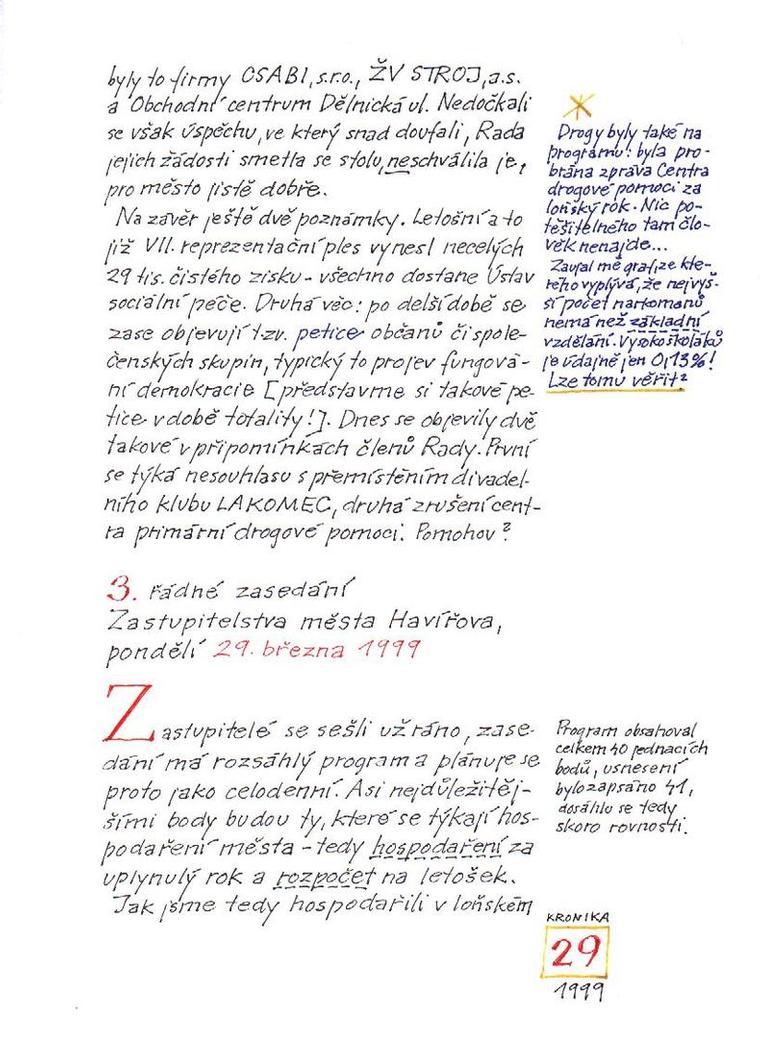 byly to firmy CSABI, s.r.o., ŽV STROJ, a.s.
a Obchodní centrum Dělnická ul. Nedočkali
se však úspěchu, ve který snad doufali, Rada
jejich žádosti smetla se stolu, neschválila je,
pro město jistě dobře.
Na závěr ještě dvě poznámky. Letošní a to
již VII. reprezentační ples vynesl necelých
29 tis. čistého zisku - všechno dostane Ústav
sociální péče. Druhá věc: po delší době se
zase objevují tzv. petice občanů či spole-
čenských skupin, typický to projev fungová-
ní demokracie [představme si takové pe-
tice v době totality!]. Dnes se objevily dvě
takové v připomínkách členů Rady. První
se týká nesouhlasu s přemístěním divadel-
ního klubu LAKOMEC, druhá zrušení cent-
ra primární drogové pomoci. Pomohou?
Drogy byly také na
programu: byla pro-
brána zpráva Centra
drogové pomoci za
loňský rok. Nic po-
těšitelného tam člo-
věk nenajde...
Zaujal mě graf, ze kte-
rého vyplývá, že nejvyš-
ší počet narkomanů
nemá než základní
vzdělání. Vysokoškoláků
je údajně jen 0,13%!
Lze tomu věřit?
3. řádné zasedání
Zastupitelstva města Havířova,
pondělí 29. března 1999
Zastupitelé se sešli už ráno, zase-
dání má rozsáhlý program a plánuje se
proto jako celodenní. Asi nejdůležitěj-
šími body budou ty, které se týkají hos-
podaření města - tedy hospodaření za
uplynulý rok a rozpočet na letošek.
Jak jsme tedy hospodařili v loňském
Program obsahoval
celkem 40 jednacích
bodů, usnesení
bylo zapsáno 41,
dosáhlo se tedy
skoro rovnosti.
KRONIKA
29
1999